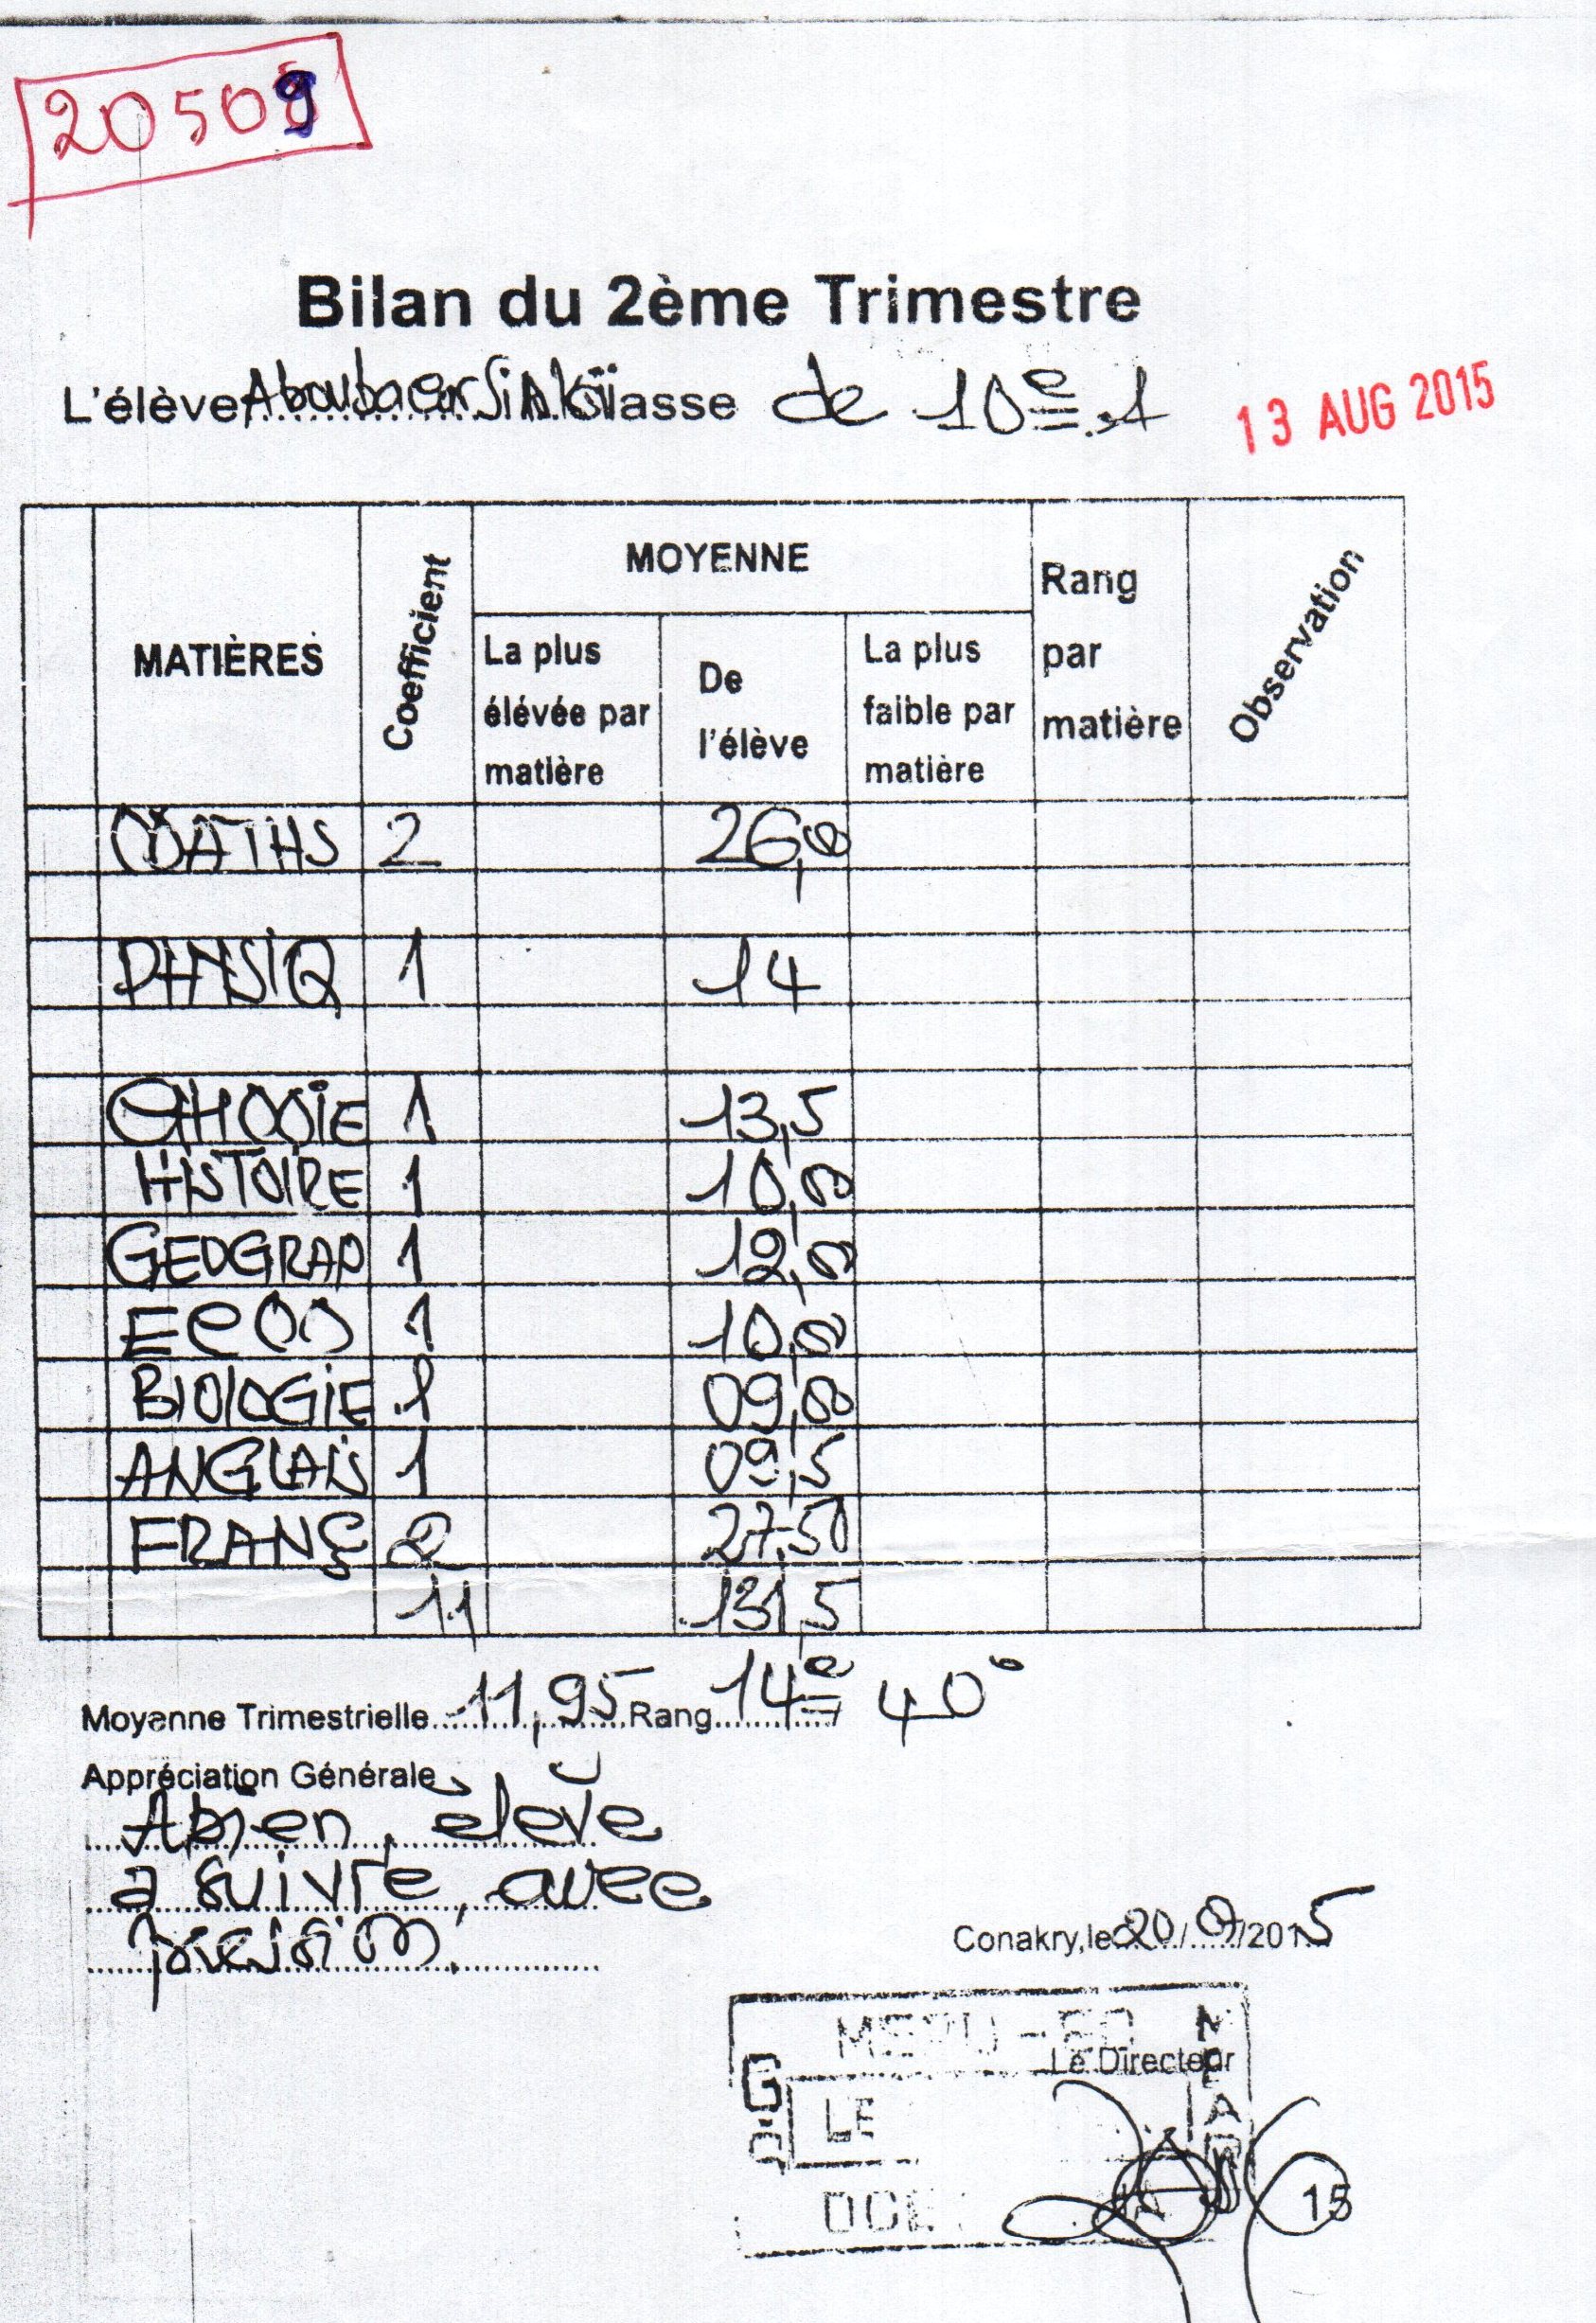 20509
Bilan du 2ème Trimestre
L'élève Aboubacar classe de 10e 1
13 AUG 2015
MATIÈRES Coefficient MOYENNE Rang par matière Observation
La plus élévée par matière De l'élève La plus faible par matière
MATHS 2 26,00
PHYSIQ 1 14
CHIMIE 1 13,5
HISTOIRE 1 10,00
GEOGRAP 1 12,00
ECM 1 10,00
BIOlOGiE 1 09,00
ANGLAIS 1 09,5
FRANÇ 2 27,50
11 131,5
Moyenne Trimestrielle 11,95 Rang 14e / 40
Appréciation Générale
A bien, élève
a suivre, avec
Conakry, le 20/ /2015
Le Directeur
LE
DCE
15